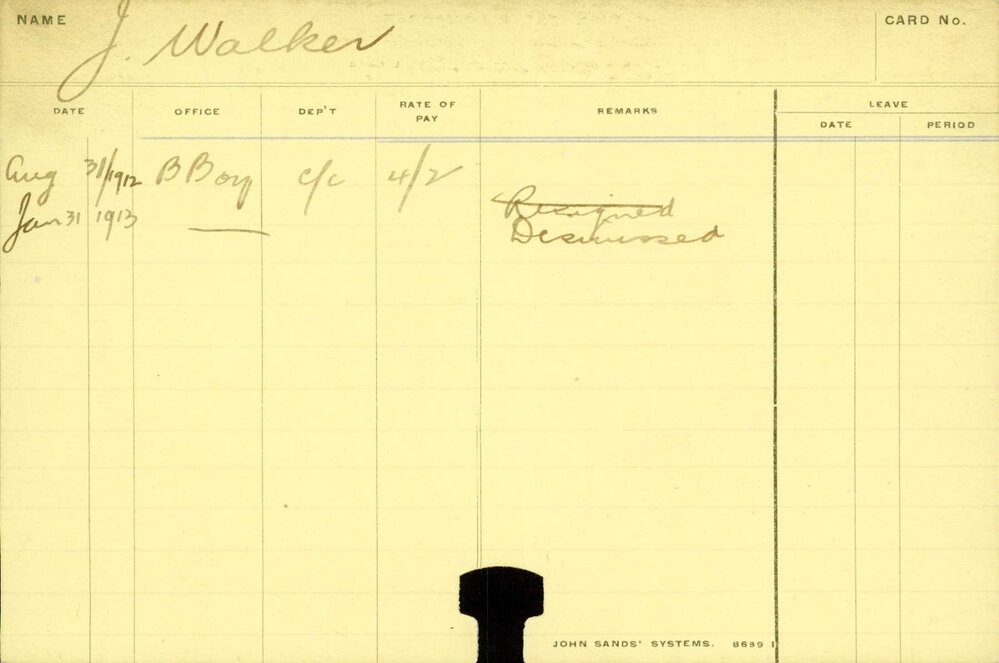 NAME J. Walker CARD No.
DATE OFFICE DEP'T RATE OF PAY REMARKS LEAVE
DATE PERIOD
Aug 31/1912 B Boy c/c 4/2
Jan 31 1913 —— Resigned
Desmissed
JOHN SANDS' SYSTEMS. 8699